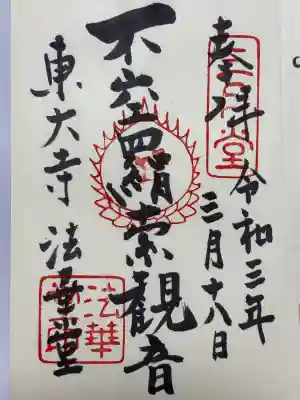 奉拝
令和三年
三月十八日
不空羂索観音
東大寺 法華堂
三月堂
法華